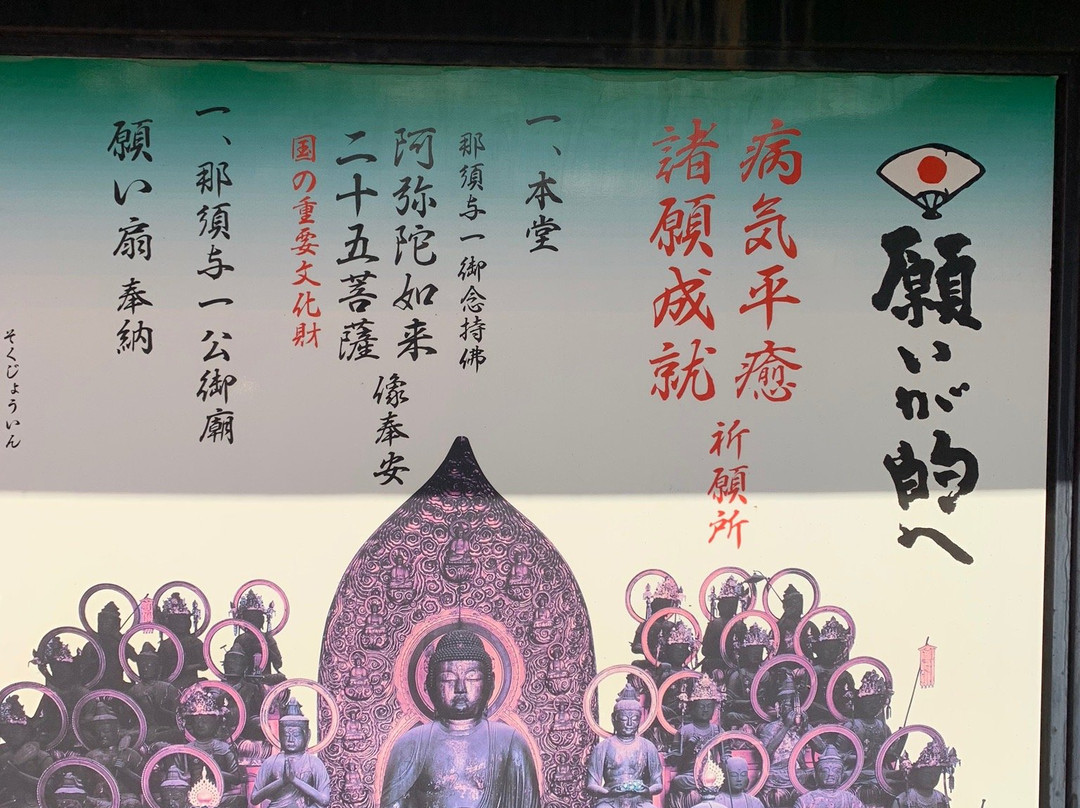 願いが的へ
病気平癒
諸願成就
祈願所
一、本堂
那須与一御念持佛
阿弥陀如来
二十五菩薩
像奉安
国の重要文化財
一、那須与一公御廟
願い扇奉納
そくじょういん